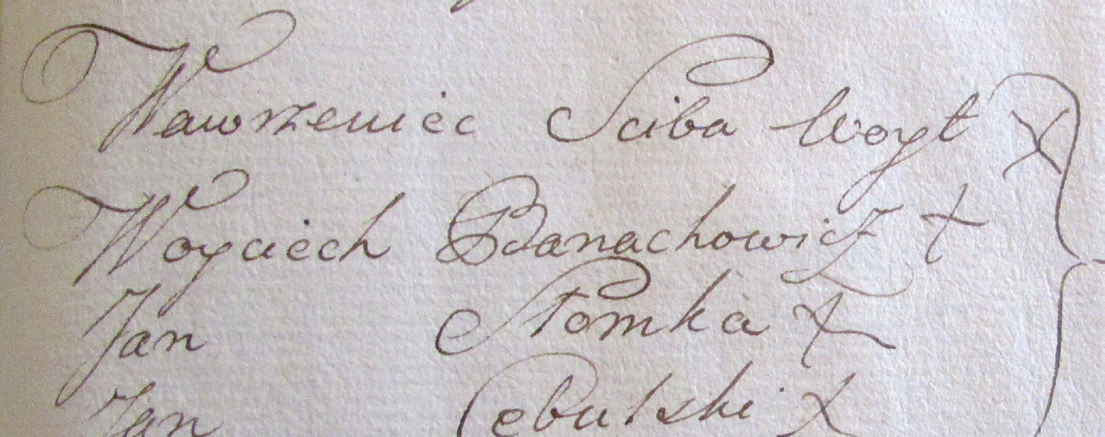 Wawrzeniec Sciba Woyt X
Woyciech Banachowicz +
Jan Słomka +
Jan Cebulski X